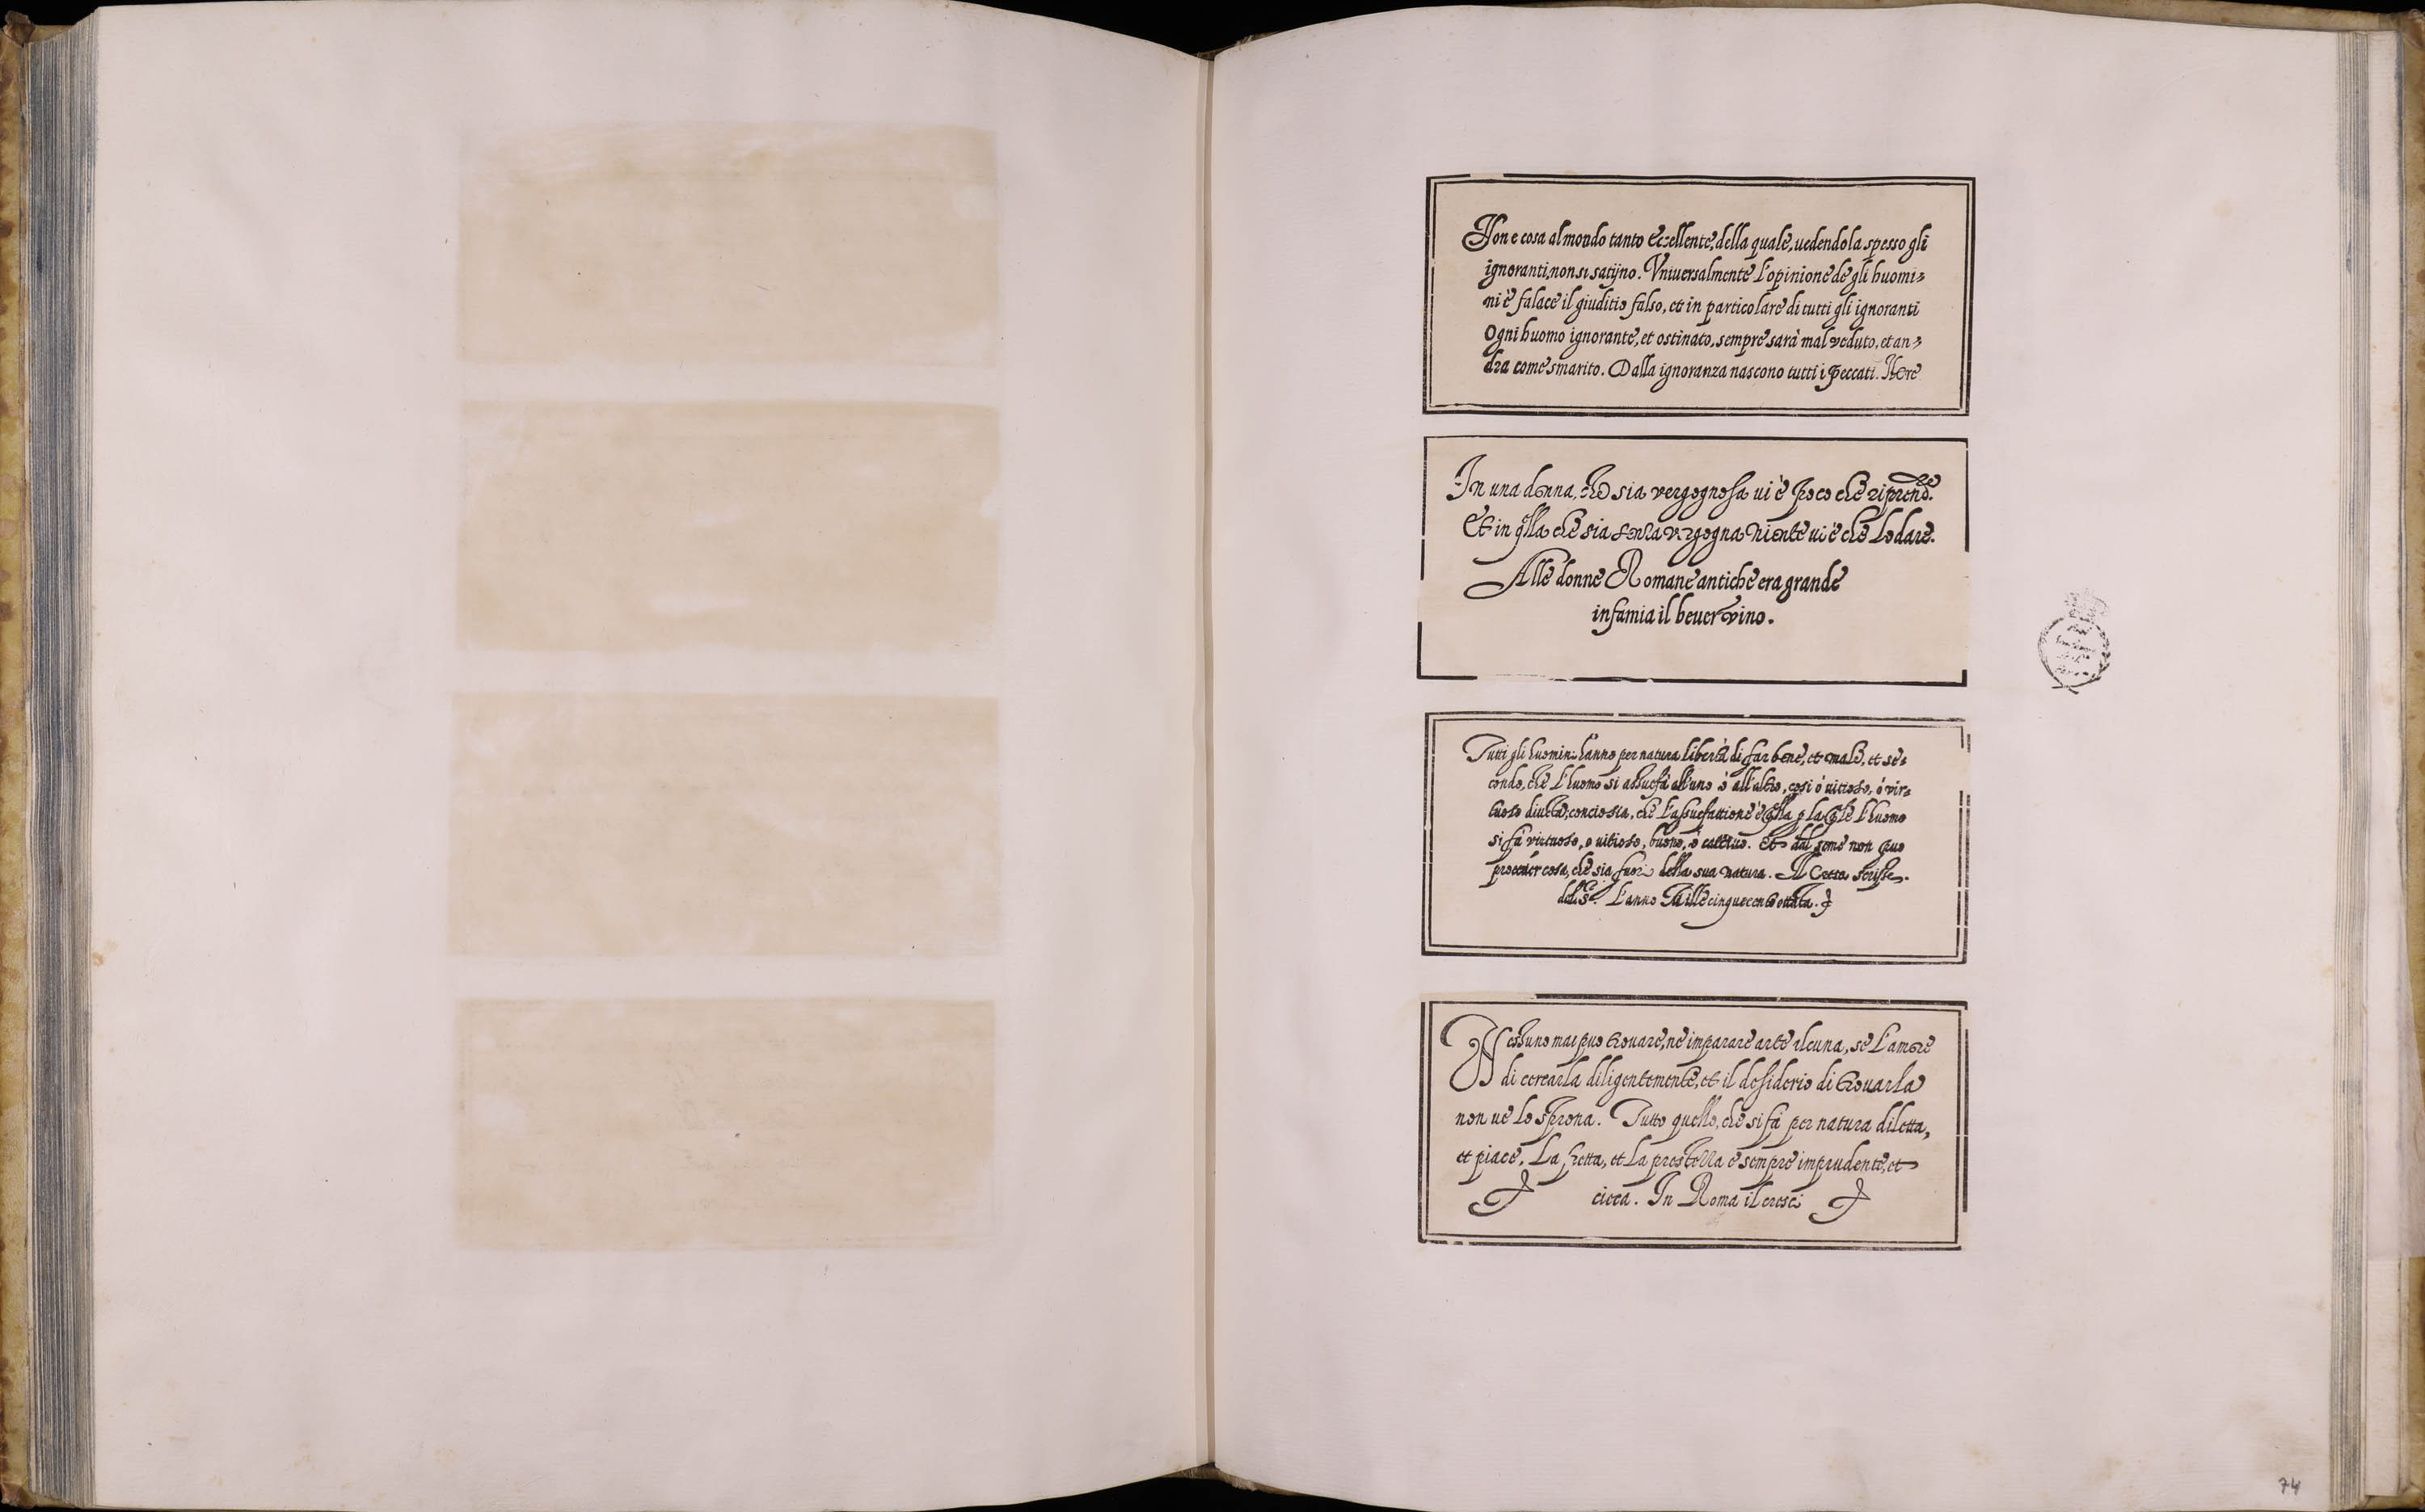 Non e cosa al mondo tanto Eccellente, della quale, uedendola spesso gli
ignoranti, non si satijno. Vniuersalmente l'opinione de gli huomi-
ni è falace il giuditio falso, et in particolare di tutti gli ignoranti
Ogni huomo ignorante, et ostinato, sempre sarà mal veduto, et an-
dra come smarito. Dalla ignoranza nascono tutti i peccati.
In una donna, che sia vergognosa ui è poco che riprendere.
Et in qlla che sia senza vergogna niente ui è che lodare.
Alle donne Romane antiche era grande
infamia il beuer vino.
Tutti gli huomini hanno per natura libertà di far bene, et male, et se-
condo, che l'huomo si assuefà all'uno ò all'altro, cosi ò uitioso, ò vir-
tuoso diuenta, conciosia, che l'assuefattione è qlla p la qle l'huomo
si fà virtuoso, o uitioso, buono, ò cattiuo. Et dal seme non puo
proceder cosa, che sia fuori della sua natura. Il Cresci scriss.
L'anno Mille cinquecento ottanta.
Nessuno mai puo trouare, ne imparare arte alcuna, se l'amore
di cercarla diligentemente, et il desiderio di trouarla
non ue lo sprona. Tutto quello, che si fà per natura diletta,
et piace. La fretta, et la prestezza è sempre imprudente, et
cieca. In Roma il Cresci
74